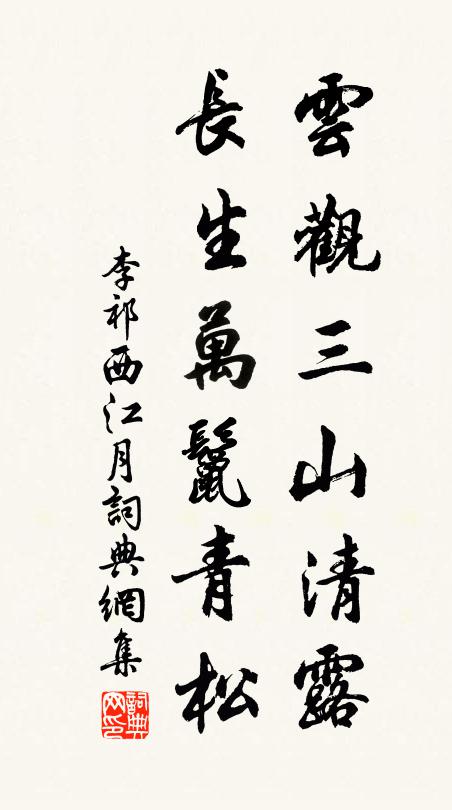 雲觀三山清露
長生萬鬣青松
李祁西江月詞典網集
詞典網印